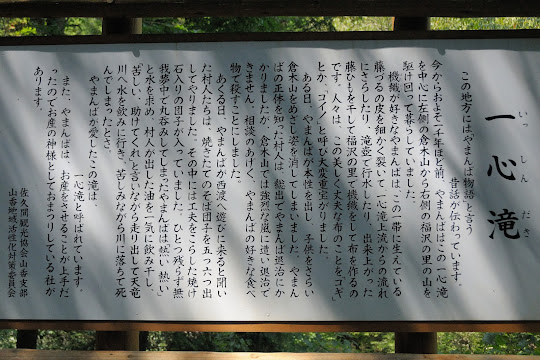 一心滝
いっしんだき
この地方にはやまんば物語と言う
昔話が伝わっています。
今からおよそ一千年ほど前、やまんばはこの一心滝
を中心に左側の倉木山から右側の福沢の里の山を
駆け回って暮らしていました。
機織が好きなやまんばは、この一帯に生えている
藤づるの皮を細かく裂いて一心滝上流からの流れ
にさらしたり、滝壺で行水したり、出来上がった
藤ひもを干して福沢の里で機織をして布を作るの
です。人々は、この美しくて丈夫な布のことを「ゴギ」
とか、「コイノ」と呼び大変重宝がりました。
ある日、やまんばが本性を出し、子供をさらい
倉木山をめざし姿を消してしまいました。やまん
ばの正体を知った村人は、総出でやまんば退治にか
かりましたが、倉木山では強烈な嵐に遭い退治で
きません。相談のあげく、やまんばの好きな食べ
物で殺すことにしました。
あくる日、やまんばが西渡へ遊びに来ると聞い
た村人たちは、焼きたてのそば団子を五つ六つ出
してやりました。その中にはて夫をこらした焼け
石入りの団子が入っていました。ひとつ残らず無
我夢中で丸呑みしてしまったやまんばは「熱い、熱い」
と水を求め、村人が出した油を一気に飲み干し、
「苦しい、助けてくれ」と言いながら走り出して天竜
川へ水を飲みに行き、苦しみながら川に落ちて死
んでしまったとさ。
やまんばが愛したこの滝は、
一心滝と呼ばれています。
また、やまんばは、お産をさせることが上手だ
ったのでお産の神様としておまつりしている社が
あります。
佐久間観光協会山香支部
山香地域活性化対策委員会